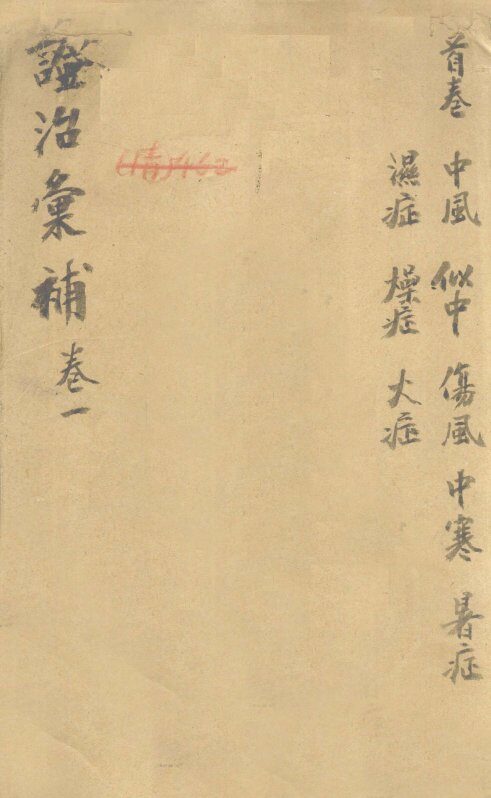 首卷 中風 似中 傷風 中寒 暑症
濕症 燥症 火症
證治彙補 卷一